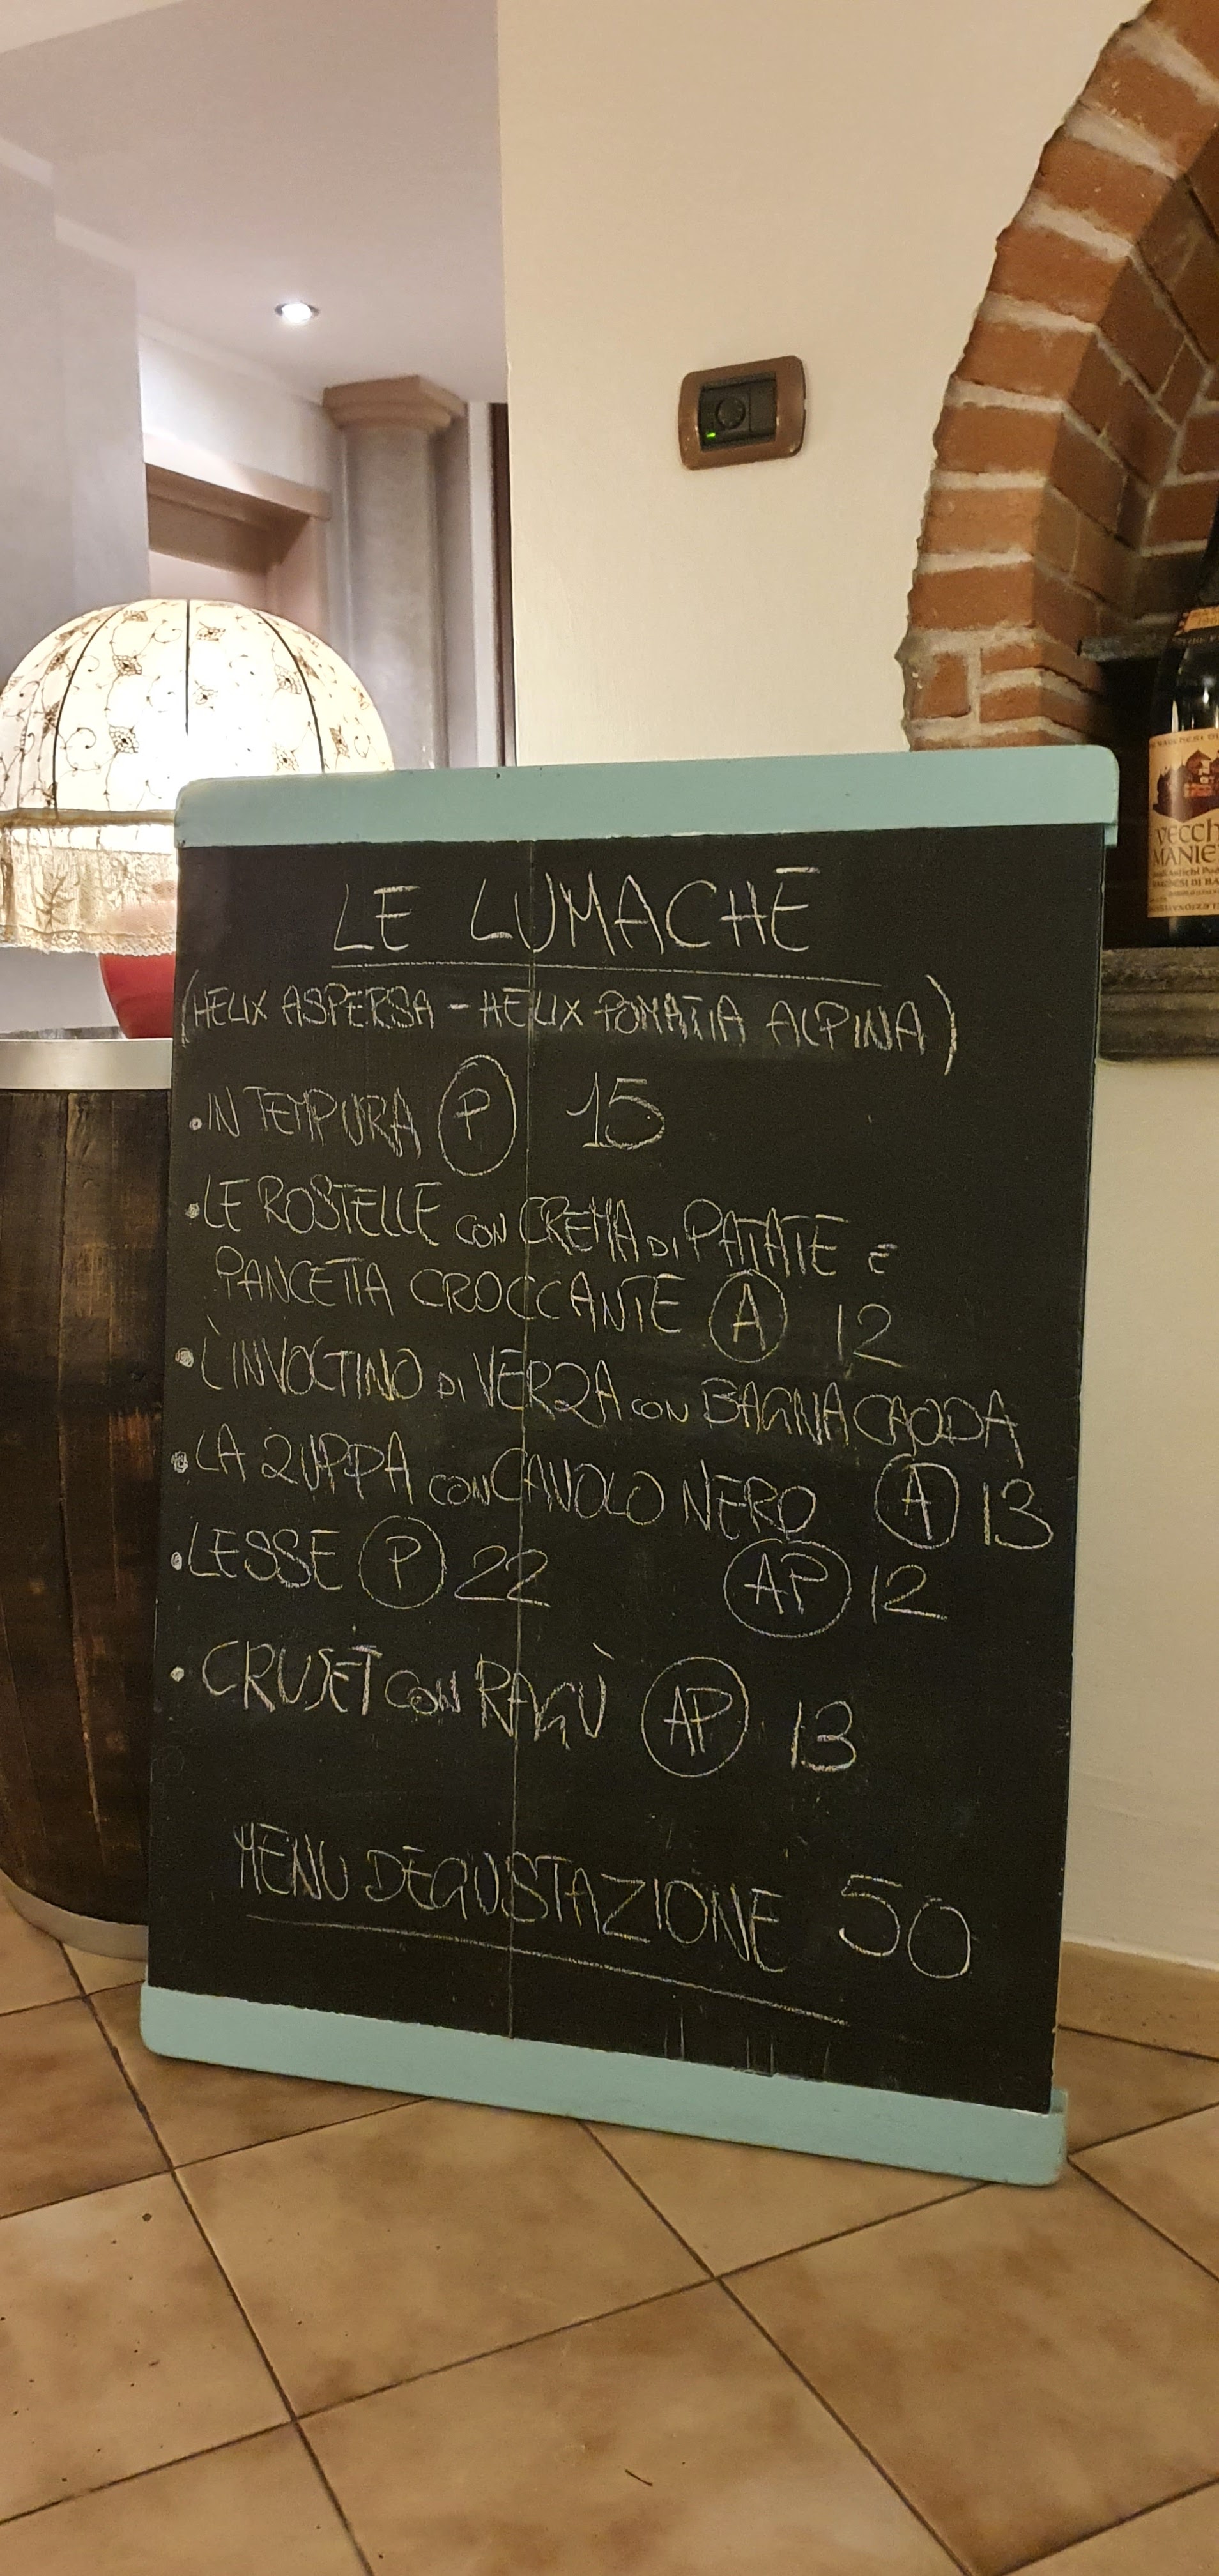 LE LUMACHE
(HELIX ASPERSA - HELIX POMATIA ALPINA)
• IN TEMPURA P 15
• LE ROSTELLE CON CREMA DI PATATE E
PANCETTA CROCCANTE A 12
• L'INVOLTINO DI VERZA CON BAGNA CAODA
A 13
• LA ZUPPA CON CAVOLO NERO
AP 12
• LESSE P 22
• CRUSET CON RAGÙ AP 13
MENU DEGUSTAZIONE 50
VECCH
MANIE